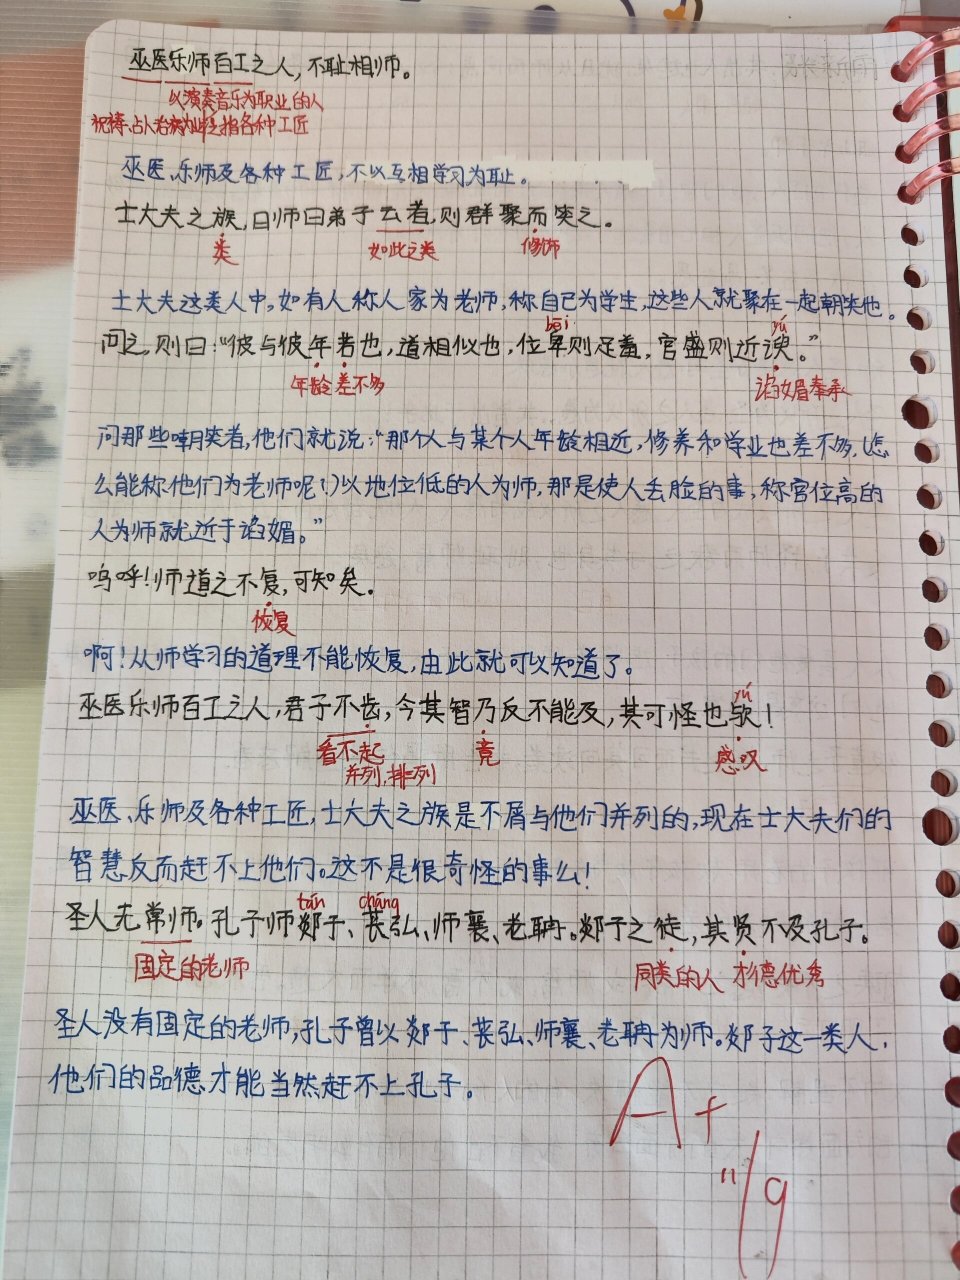 巫医乐师百工之人，不耻相师。
以演奏音乐为职业的人
祝祷、占卜治病为业 泛指各种工匠
巫医、乐师及各种工匠，不以互相学习为耻。
士大夫之族，曰师曰弟子云者，则群聚而笑之。
类 如此之类 修饰
士大夫这类人中，如有人称人家为老师，称自己为学生，这些人就聚在一起嘲笑他。
bēi yú
问之，则曰：“彼与彼年若也，道相似也，位卑则足羞，官盛则近谀。”
年龄 差不多 谄媚奉承
问那些嘲笑者，他们就说：“那个人与某个人年龄相近，修养和学业也差不多，（怎
么能称他们为老师呢？）以地位低的人为师，那是使人丢脸的事，称官位高的
人为师就近于谄媚。”
呜呼！师道之不复，可知矣。
恢复
啊！从师学习的道理不能恢复，由此就可以知道了。
yú
巫医乐师百工之人，君子不齿，今其智乃反不能及，其可怪也欤！
看不起 竟 感叹
并列，排列
巫医、乐师及各种工匠，士大夫之族是不屑与他们并列的，现在士大夫们的
智慧反而赶不上他们。这不是很奇怪的事么！
tán cháng
圣人无常师。孔子师郯子、苌弘、师襄、老聃。郯子之徒，其贤不及孔子。
固定的老师 同类的人 才德优秀
圣人没有固定的老师，孔子曾以郯子、苌弘、师襄、老聃为师。郯子这一类人，
他们的品德才能当然赶不上孔子。
A+
11/9